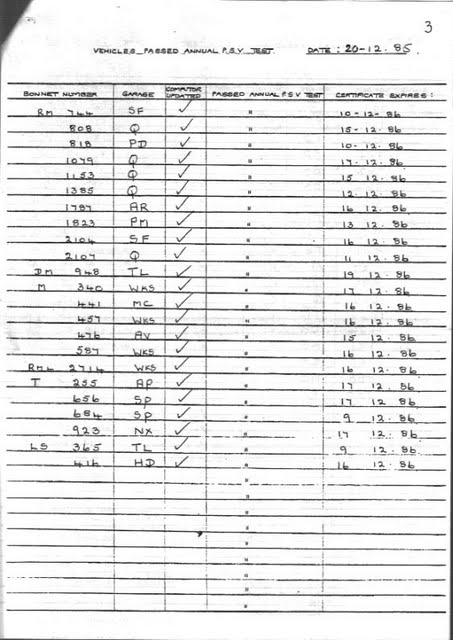 3
VEHICLES PASSED ANNUAL P.S.V. TEST. DATE : 20-12. 85.
BONNET NUMBER GARAGE COMPUTOR UPDATED PASSED ANNUAL P.S.V TEST CERTIFICATE EXPIRES :
RM 744 SF ✓ " 10-12-86
808 Q ✓ " 15-12.86
818 PD ✓ " 10-12.86
1079 Q ✓ " 17.12.86
1153 Q ✓ " 15 12.86
1385 Q ✓ " 12.12.86
1787 AR ✓ " 16 12.86
1823 PM ✓ " 13 12.86
2104 SF ✓ " 16 12.86
2107 Q ✓ " 11 12.86
DM 948 TL ✓ " 19 12.86
M 340 WKS ✓ " 17 12.86
441 MC ✓ " 16 12.86
457 WKS ✓ " 16 12.86
476 AV ✓ " 15 12.86
587 WKS ✓ " 16 12.86
RML 2714 WKS ✓ " 16 12.86
T 255 AP ✓ " 17 12.86
656 SP ✓ " 17 12.86
684 SP ✓ " 9 12.86
923 NX ✓ " 17 12.86
LS 365 TL ✓ " 9 12.86
416 HD ✓ " 16 12.86
"
"
"
"
"
"
"
"